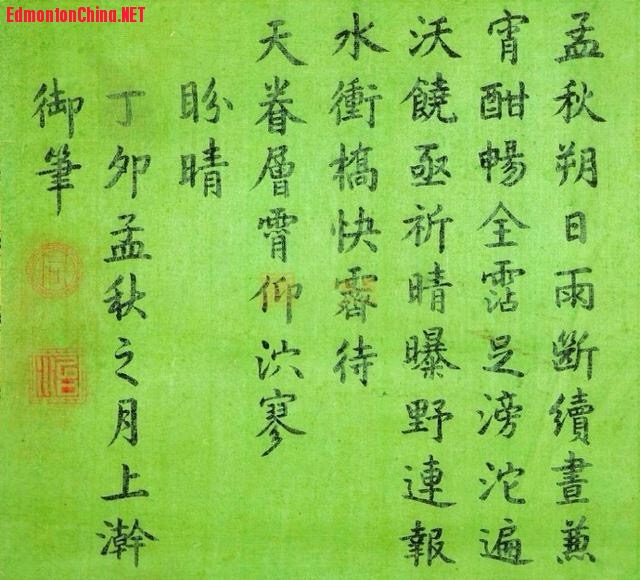 EdmontonChina.NET
孟秋朔日雨斷續晝兼
宵酣暢全霑足滂沱遍
沃饒亟祈晴曝野連報
水衝橋快霽待
天眷層霄仰泬寥
盼晴
丁卯孟秋之月上澣
御筆